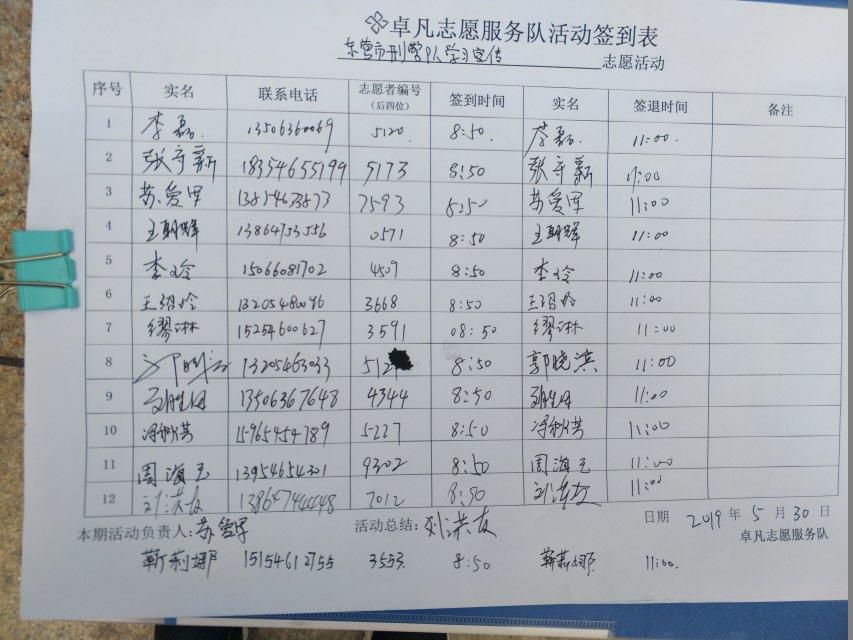 卓凡志愿服务队活动签到表
东营市刑警队学习宣传 志愿活动
序号 实名 联系电话 志愿者编号（后四位） 签到时间 实名 签退时间 备注
1 李磊. 13506360069 5120 8:50. 李磊. 11:00.
2 张守新 18354655199 5173 8:50 张守新 11:00
3 苏爱军 7593 8:50 苏爱军 11:00
4 王朝辉 13864753556 0571 8:50 王朝辉 11:00
5 李玲 15066081702 4509 8:50 李玲 11:00
6 王绍玲 13205480096 3668 8:50 王绍玲 11:00
7 缪淋 15254600627 3591 08:50 缪淋 11:00
8 13205463033 512 8:50 郭晓滨 11:00
9 13506367648 4344 8:50 11:00
10 15965454789 5227 8:50 11:00
11 周海玉 13954654301 9302 8:50 周海玉 11:00
12 刘洪友 7012 8:50 刘洪友 11:00
本期活动负责人:苏爱军 活动总结:刘洪友 日期 2019年5月30日
卓凡志愿服务队
靳莉娜 15154612755 3553. 8:50 靳莉娜. 11:00.